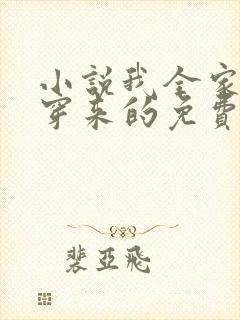 小說我全家
穿来的免費
裴亞飛